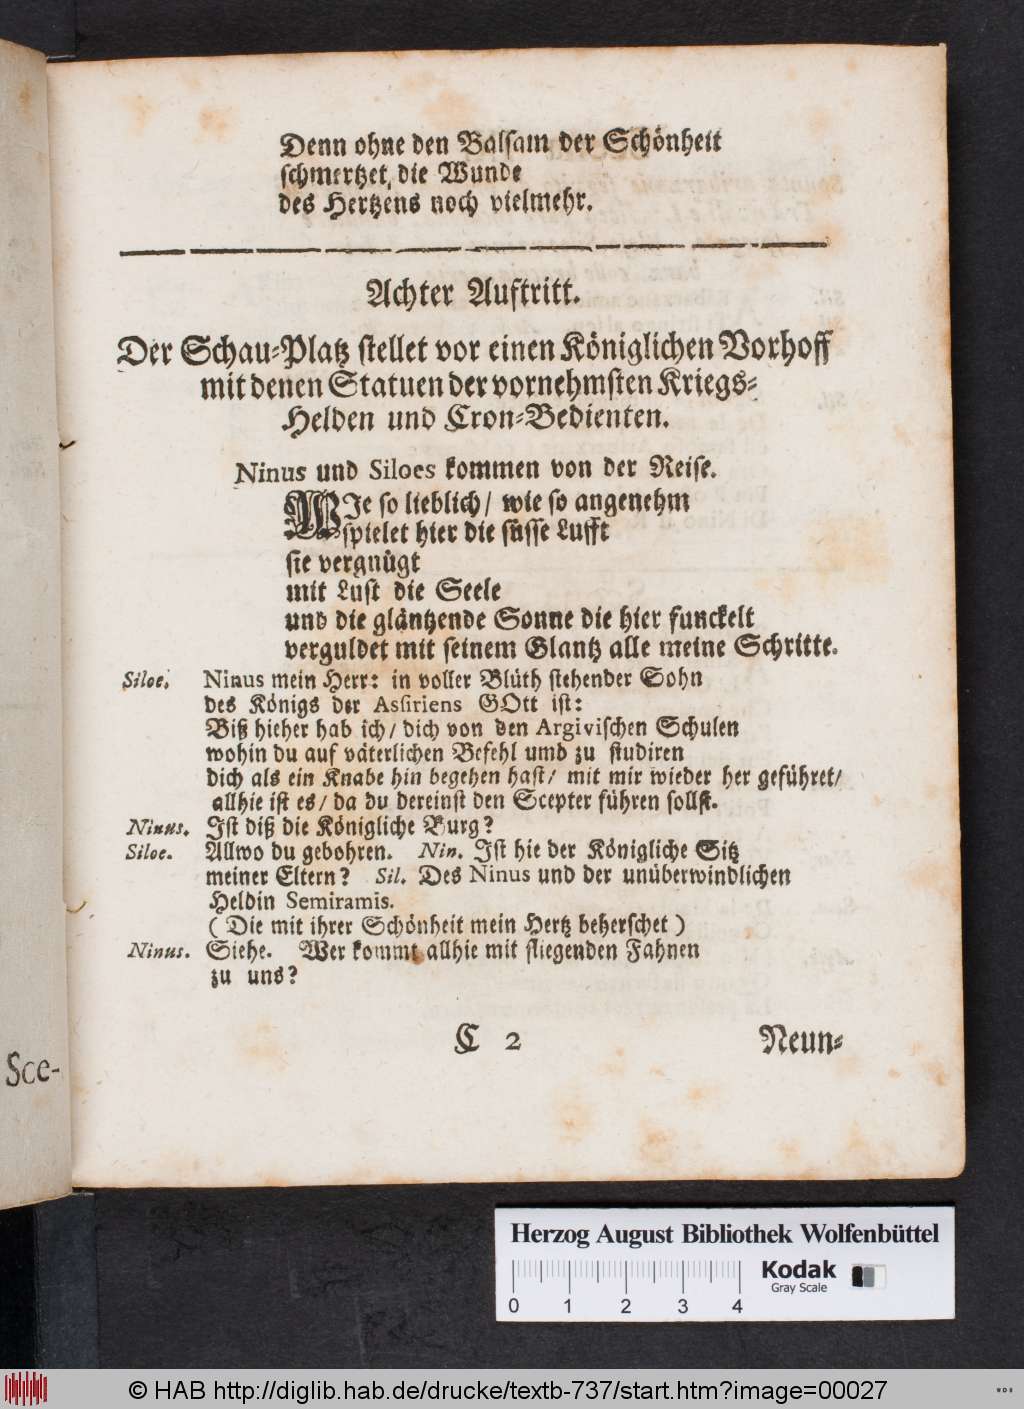 Denn ohne den Balsam der Schönheit
schmertzet, die Wunde
des Hertzens noch vielmehr.
Achter Auftritt.
Der Schau-Platz stellet vor einen Königlichen Vorhoff
mit denen Statuen der vornehmsten Kriegs-
Helden und Cron-Bedienten.
Ninus und Siloes kommen von der Reise.
WJe so lieblich/ wie so angenehm
spielet hier die süsse Lufft
sie vergnügt
mit Lust die Seele
und die gläntzende Sonne die hier funckelt
verguldet mit seinem Glantz alle meine Schritte.
Siloe. Ninus mein Herr: in voller Blüth stehender Sohn
des Königs der Assiriens GOtt ist:
Biß hieher hab ich/ dich von den Argivischen Schulen
wohin du auf väterlichen Befehl umb zu studiren
dich als ein Knabe hin begehen hast/ mit mir wieder her geführet/
allhie ist es/ da du dereinst den Scepter führen sollst.
Ninus. Jst diß die Königliche Burg?
Siloe. Allwo du gebohren. Nin. Jst hie der Königliche Sitz
meiner Eltern? Sil. Des Ninus und der unüberwindlichen
Heldin Semiramis.
(Die mit ihrer Schönheit mein Hertz beherschet)
Ninus. Siehe. Wer kommt allhie mit fliegenden Fahnen
zu uns?
C 2 Neun-
Sce-
Herzog August Bibliothek Wolfenbüttel
Kodak
Gray Scale
0 1 2 3 4
© HAB http://diglib.hab.de/drucke/textb-737/start.htm?image=00027